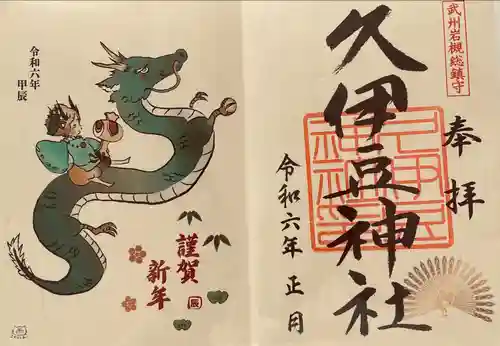 武州岩槻総鎮守
奉拝
久伊豆神社
令和六年正月
令和六年
甲辰
謹賀
新年
辰